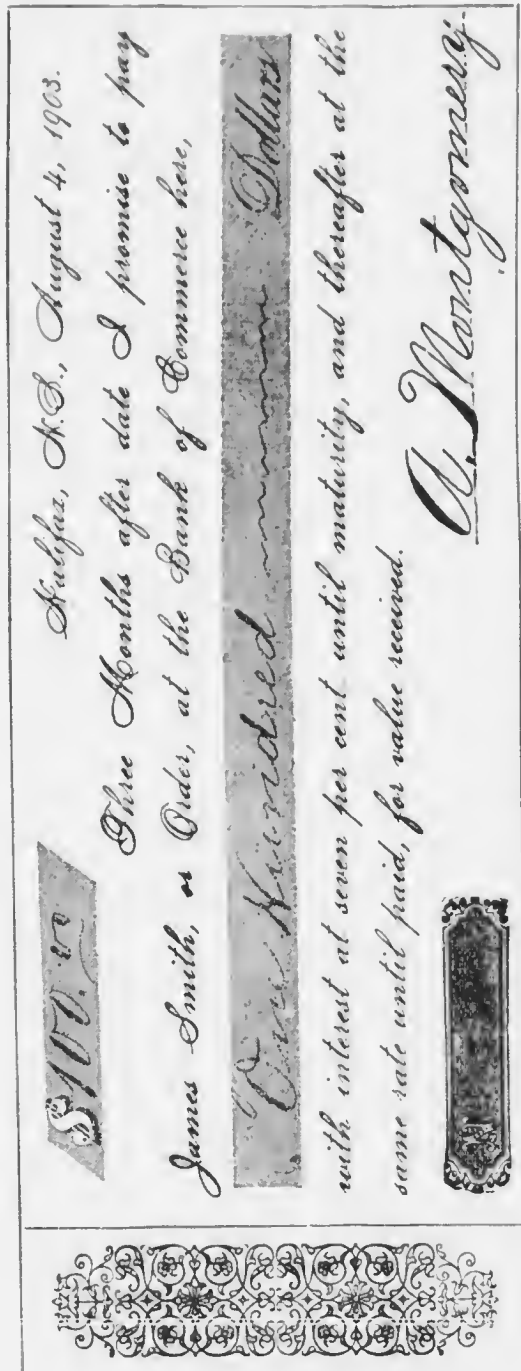 $100.00
Halifax, N.S., August 4, 1903.
Three Months after date I promise to pay
James Smith, or Order, at the Bank of Commerce here,
One Hundred Dollars
with interest at seven per cent until maturity, and thereafter at the
same rate until paid, for value received.
A. Montgomery.